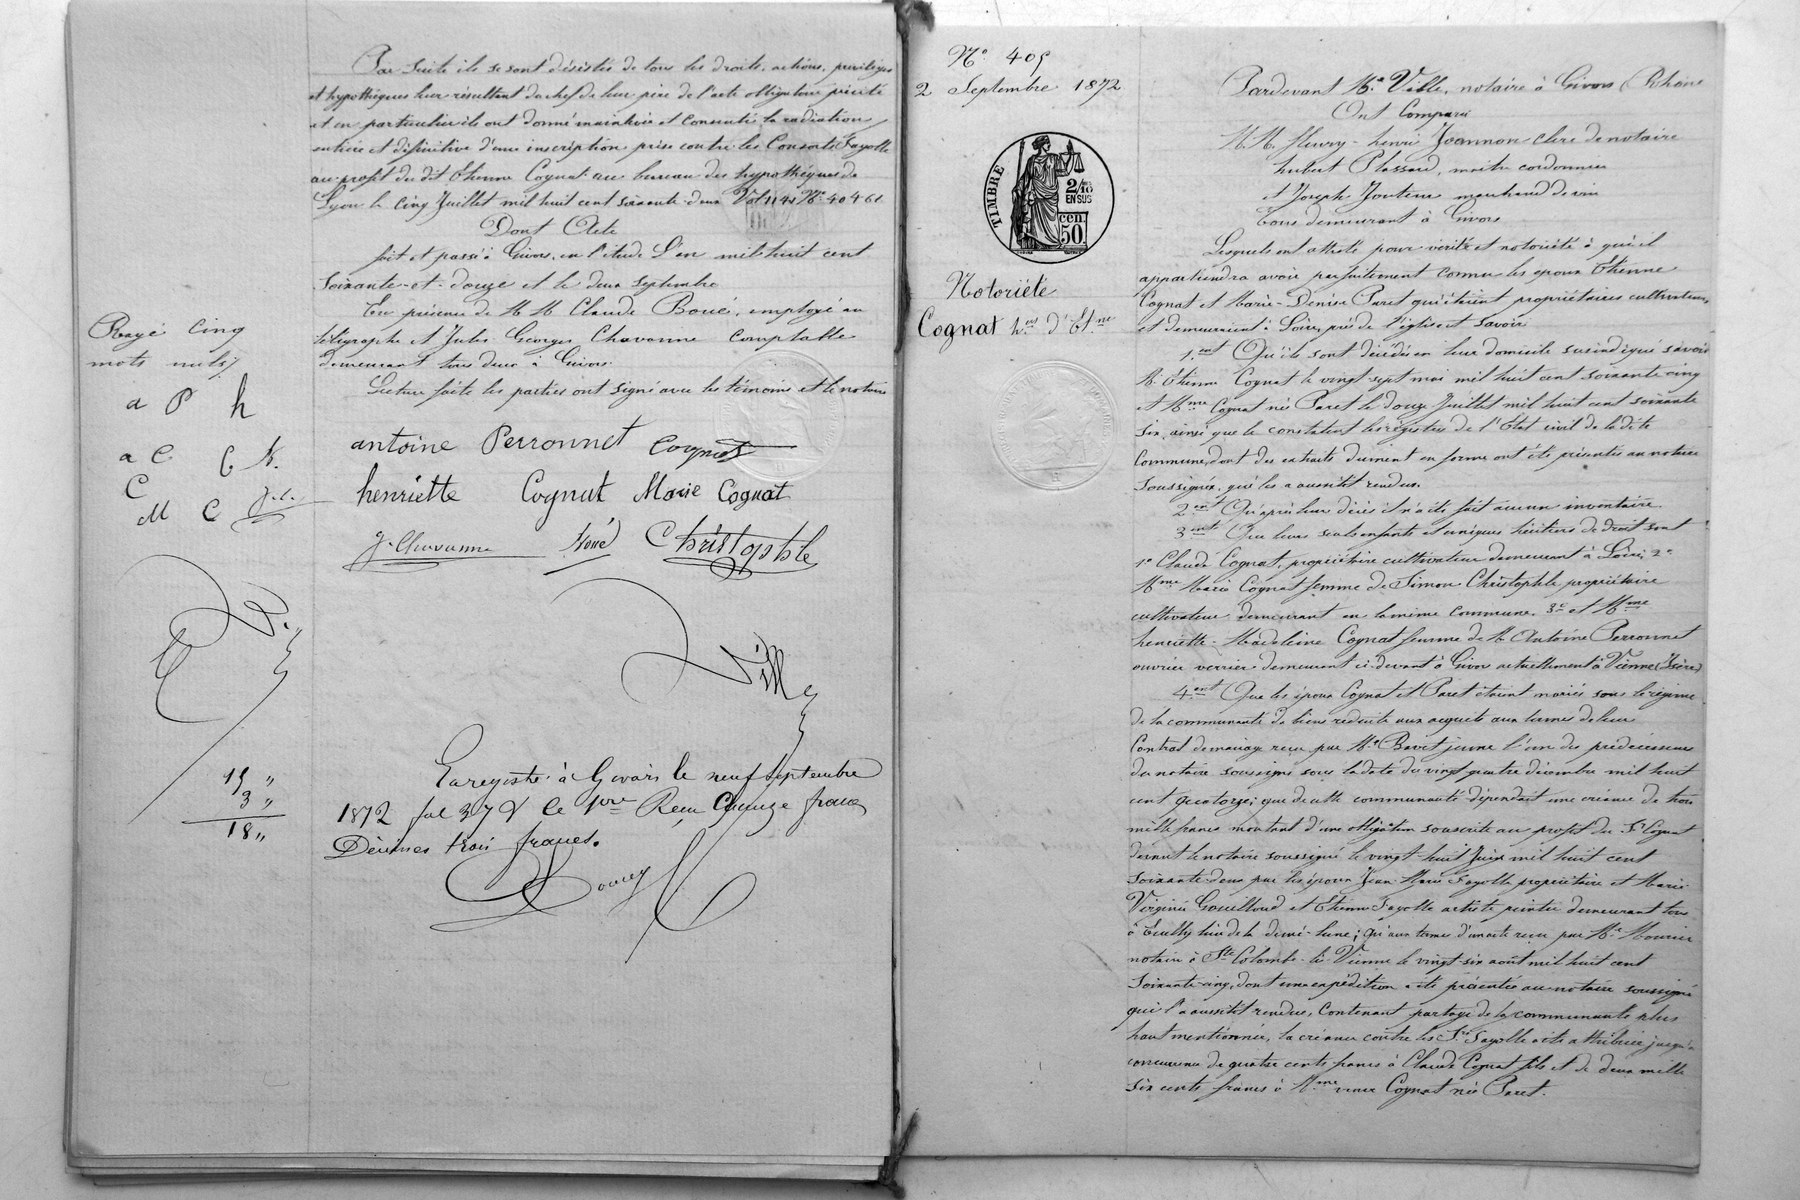 Par suite ils se sont désistés de tous les droits, actions, privilèges
et hypothèques leur résultant du chef de leur père de l'acte obligation précité
et en particulier ils ont donné mainlevée et consenti la radiation
entière et définitive d'une inscription prise contre les Consorts Fayolle
au profit du dit Etienne Cognat au bureau des hypothèques de
Lyon le cinq Juillet mil huit cent soixante-deux Vol 1141 No 40461
Dont Acte
fait et passé à Givors, en l'étude L'an mil huit cent
soixante-et-douze et le deux septembre
En présence de M M Claude Boué, employé au
télégraphe et Jules Georges Chavanne comptable
demeurant tous deux à Givors
Lecture faite les parties ont signé avec les témoins et le notaire
Rayé cinq
mots nuls
a P h
a C C N.
C
M C J.C.
antoine Perronnet Cognat
henriette Cognat Marie Cognat
J. Chavanne Boué Christophle
Ville
V.
15 "
3 "
18 "
Enregistré à Givors le neuf septembre
1872 fol 37 Ce 1re Reçu Quinze francs
Décimes trois francs.
No 405
2 Septembre 1872
TIMBRE
2/10
EN SUS
cen.
50
Notoriété
Cognat hers d'Etne
Pardevant Me Ville, notaire à Givors (Rhône
Ont Comparu
M.M. fleury-henri Joannon clerc de notaire
hubert Plassard, maitre cordonnier
et Joseph marchand de vin
Tous demeurant à Givors
Lesquels ont attesté pour vérité et notoriété à qui il
appartiendra avoir parfaitement connu les époux Etienne
Cognat et Marie-Denise Paret qui étaient propriétaires cultivateurs,
et demeuraient à Loire, près de l'église et savoir
1.ent Qu'ils sont décédés en leur domicile susindiqué savoir
M. Etienne Cognat le vingt-sept mai mil huit cent soixante cinq
et Mme Cognat née Paret le douze Juillet mil huit cent soixante
six, ainsi que le constatent les régistres de l'Etat civil de la dite
Commune, dont des extraits dument en forme ont été présentés au notaire
soussigné, qui les a aussitôt rendus.
2.ent Qu'après leur décès il n'a été fait aucun inventaire.
3.ent Que leurs seuls enfants et uniques héritiers de droit sont
1o Claude Cognat, propriétaire cultivateur demeurant à Loire, 2o
Mme Marie Cognat femme de Simon Christophle propriétaire
cultivateur demeurant en la même commune. 3o et Mme
henriette-Madeleine Cognat femme de M. Antoine Perronnet
ouvrier verrier demeurant ci-devant à Givors actuellement à Vienne (Isère)
4.ent Que les époux Cognat et Paret étaient mariés sous le régime
de la communauté de biens reduite aux acquets aux termes de leur
Contrat de mariage reçu par Me jeune l'un des prédécesseurs
du notaire soussigné sous la date du vingt quatre décembre mil huit
cent quatorze; que de cette communauté dépendait une créance de trois
mille francs montant d'une obligation souscrite au profit du Sr Cognat
devant le notaire soussigné le vingt-huit Juin mil huit cent
soixante-deux par les époux Jean-Marie Fayolle propriétaire et Marie
Virginie Gouilloud et Etienne Fayolle artiste peintre demeurant tous
à Ecully lieu de la demi-lune; Qu'aux termes d'un acte reçu par Me Mourier
notaire à Ste Colombe-lès-Vienne le vingt-six août mil huit cent
soixante-cinq, dont une expédition a été présentée au notaire soussigné
qui l'a aussitôt rendue, Contenant partage de la communauté plus
haut mentionnée, la créance contre les Srs Fayolle a été attribuée jusqu'à
concurrence de quatre cents francs à Claude Cognat fils et de deux mille
six cents francs à Mme veuve Cognat née Paret.